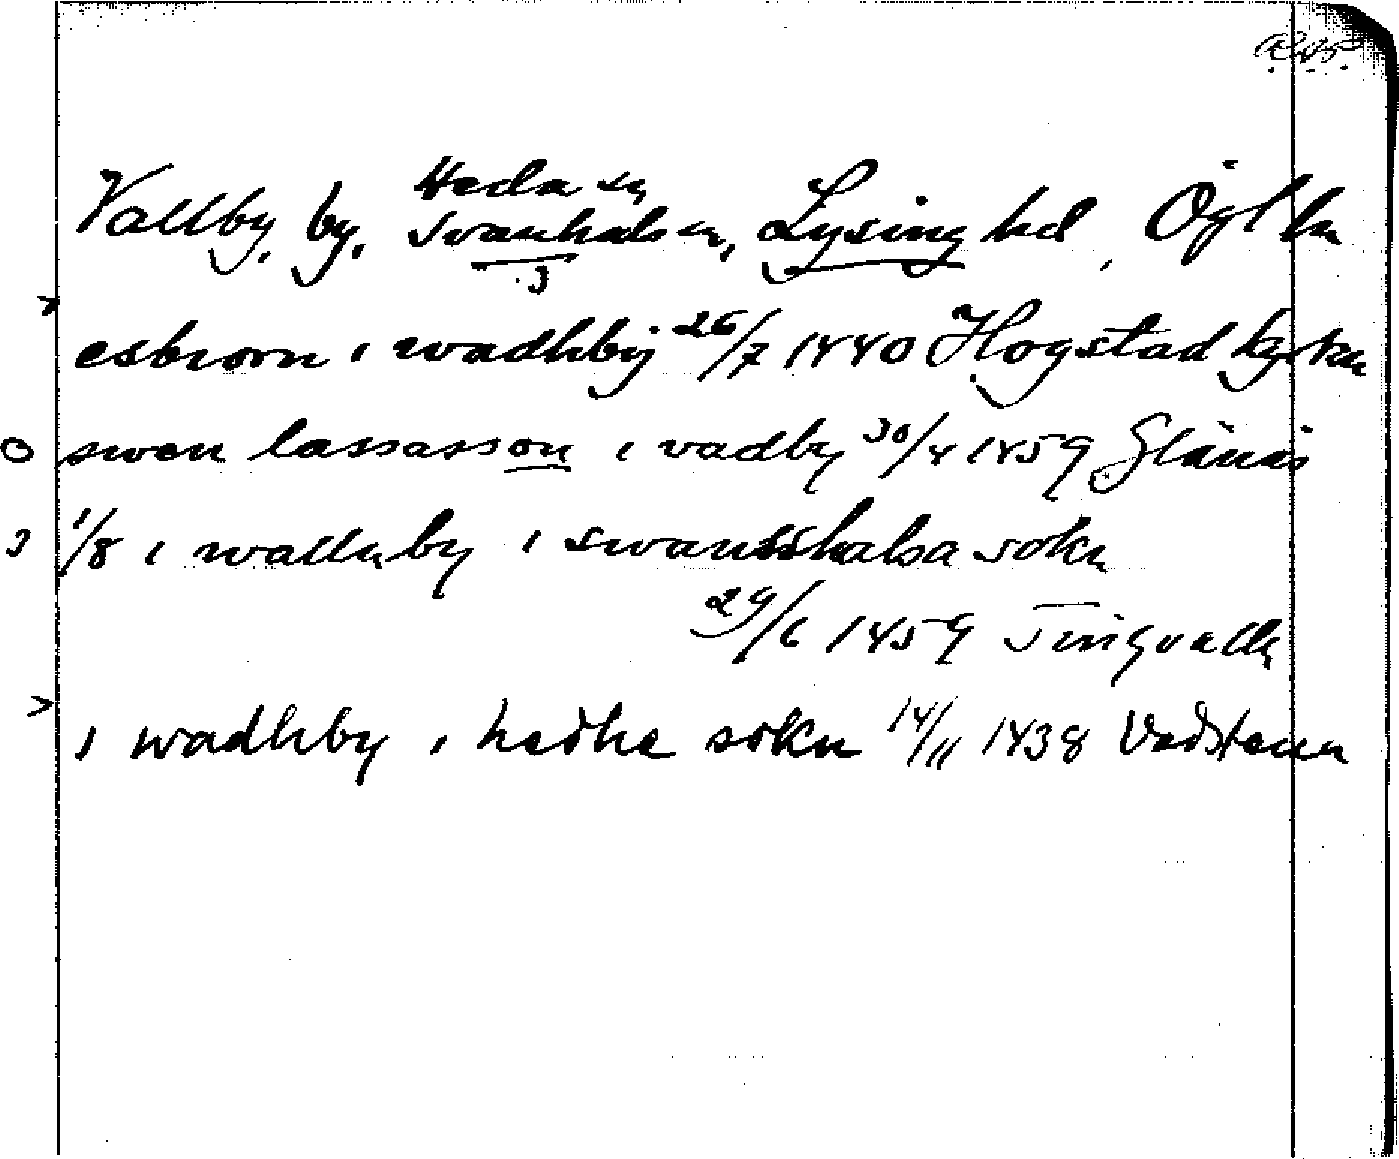 Heda sn
Vallby, by, Svanhals sn, Lysing hd, Ögl ln
esbiorn i wadhby 26/7 1440 Hogstad kyrka
swen lassasson i vadby 30/4 1459 Glänås
1/8 i walluby i swansshalsa sokn
29/6 1459 Tingvalla
i wadhby i hedhe sokn 14/11 1438 Vadstena